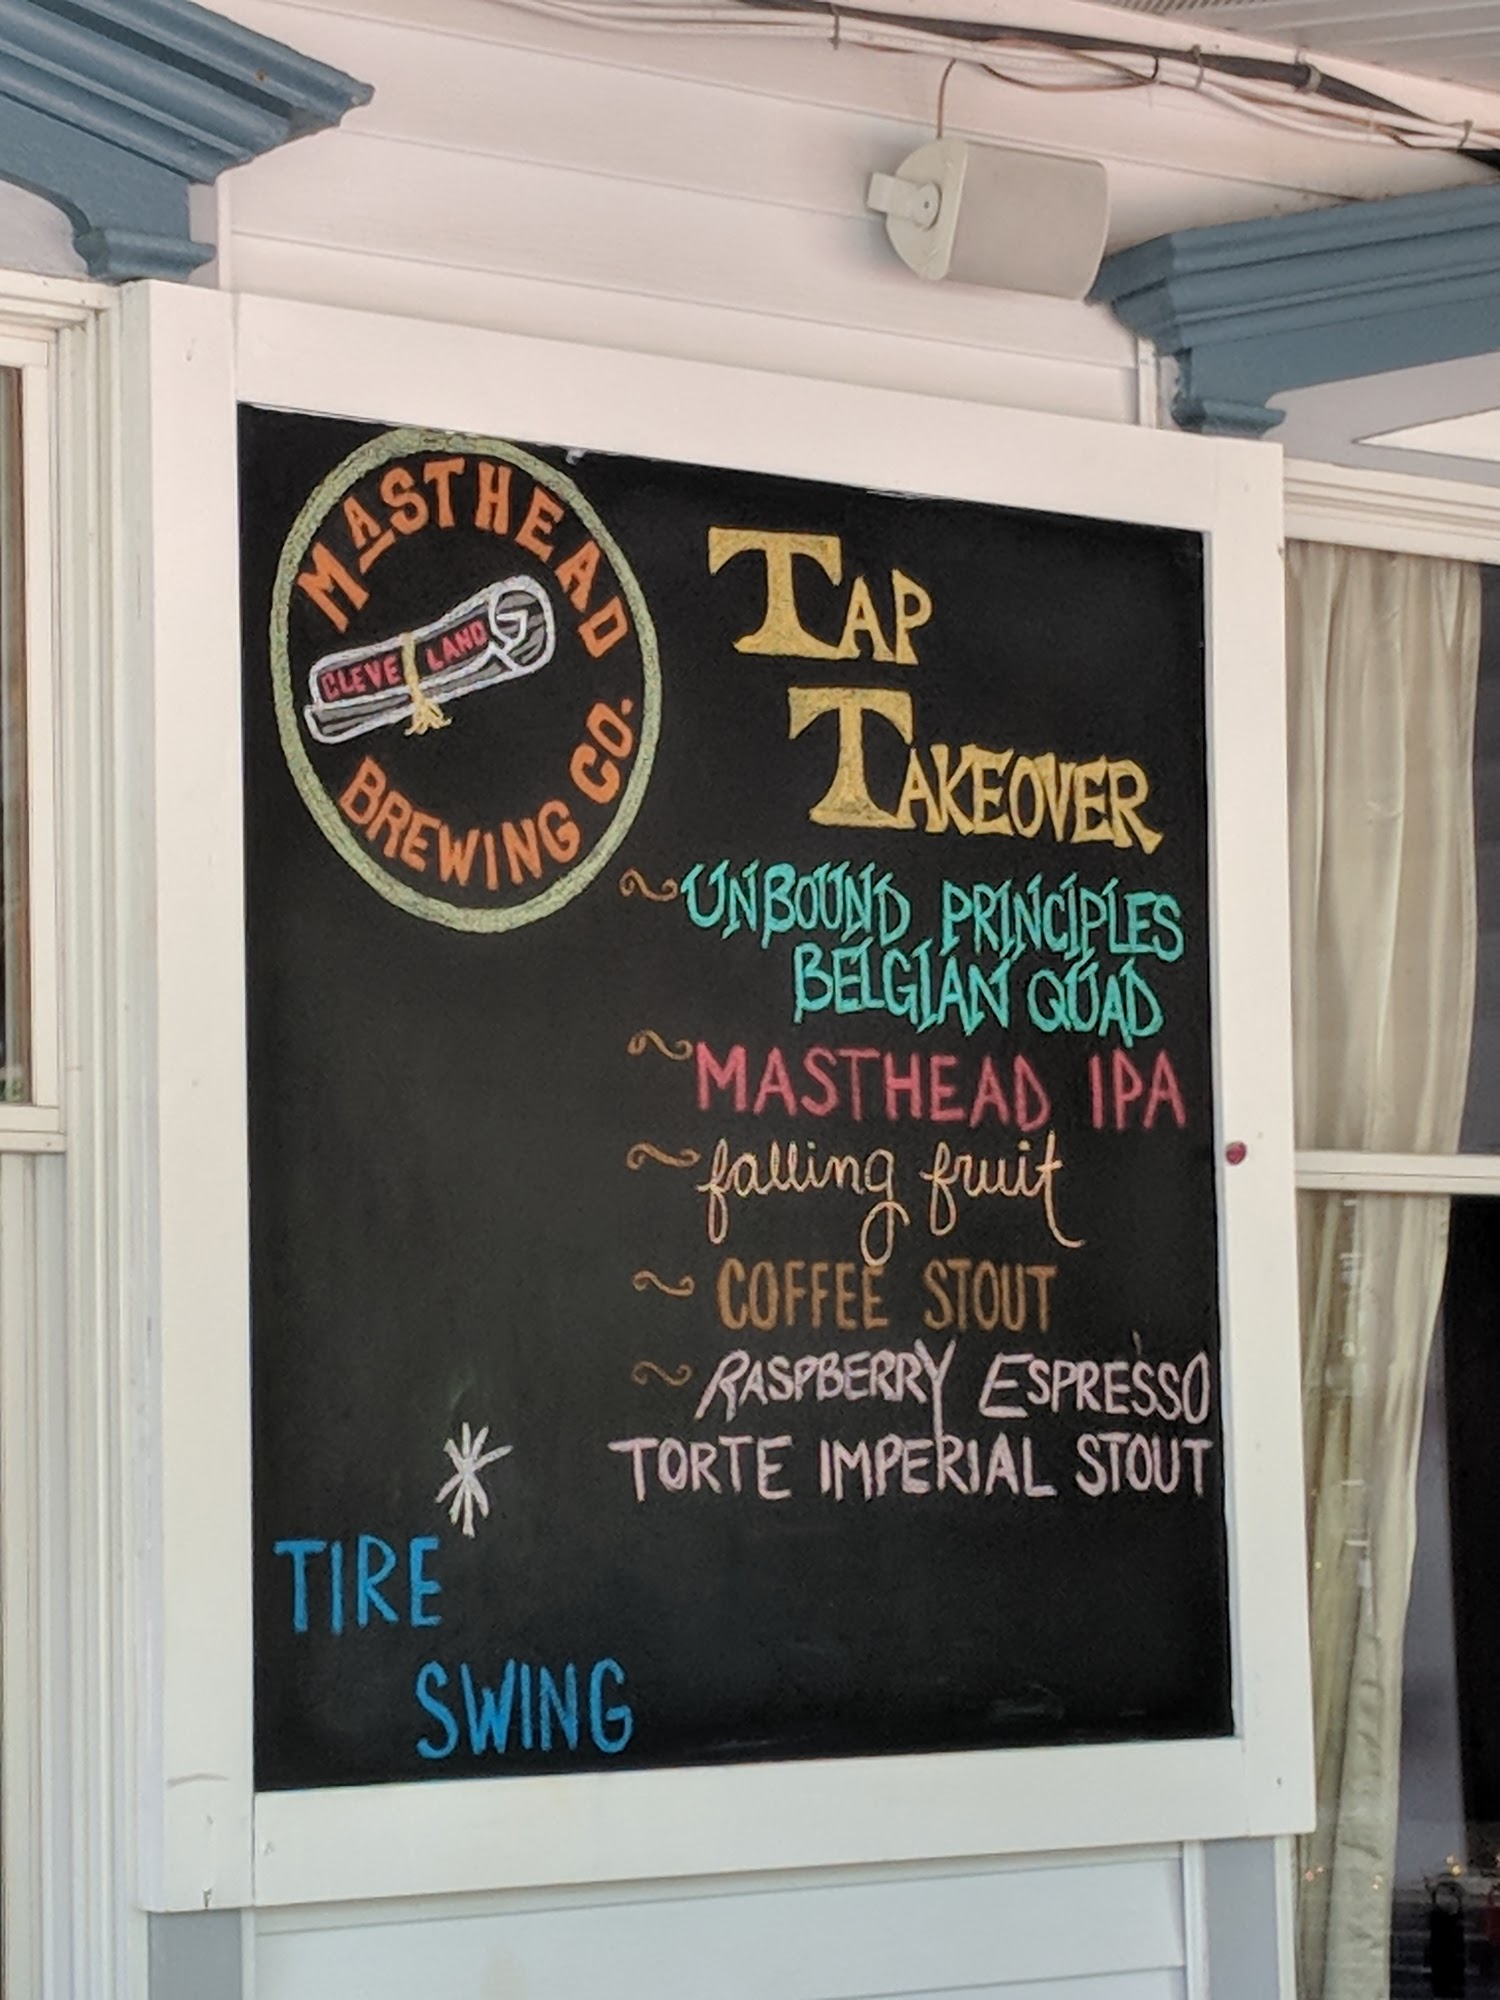 MASTHEAD
CLEVELAND
BREWING CO.
TAP
TAKEOVER
~UNBOUND PRINCIPLES
BELGIAN QUAD
~MASTHEAD IPA
~falling fruit
~ COFFEE STOUT
~ RASPBERRY ESPRESSO
TORTE IMPERIAL STOUT
*
TIRE
SWING